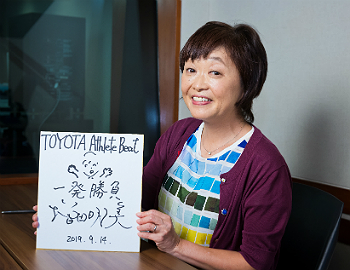 TOYOTA Athlete Beat
一発勝負
2019.9.14.